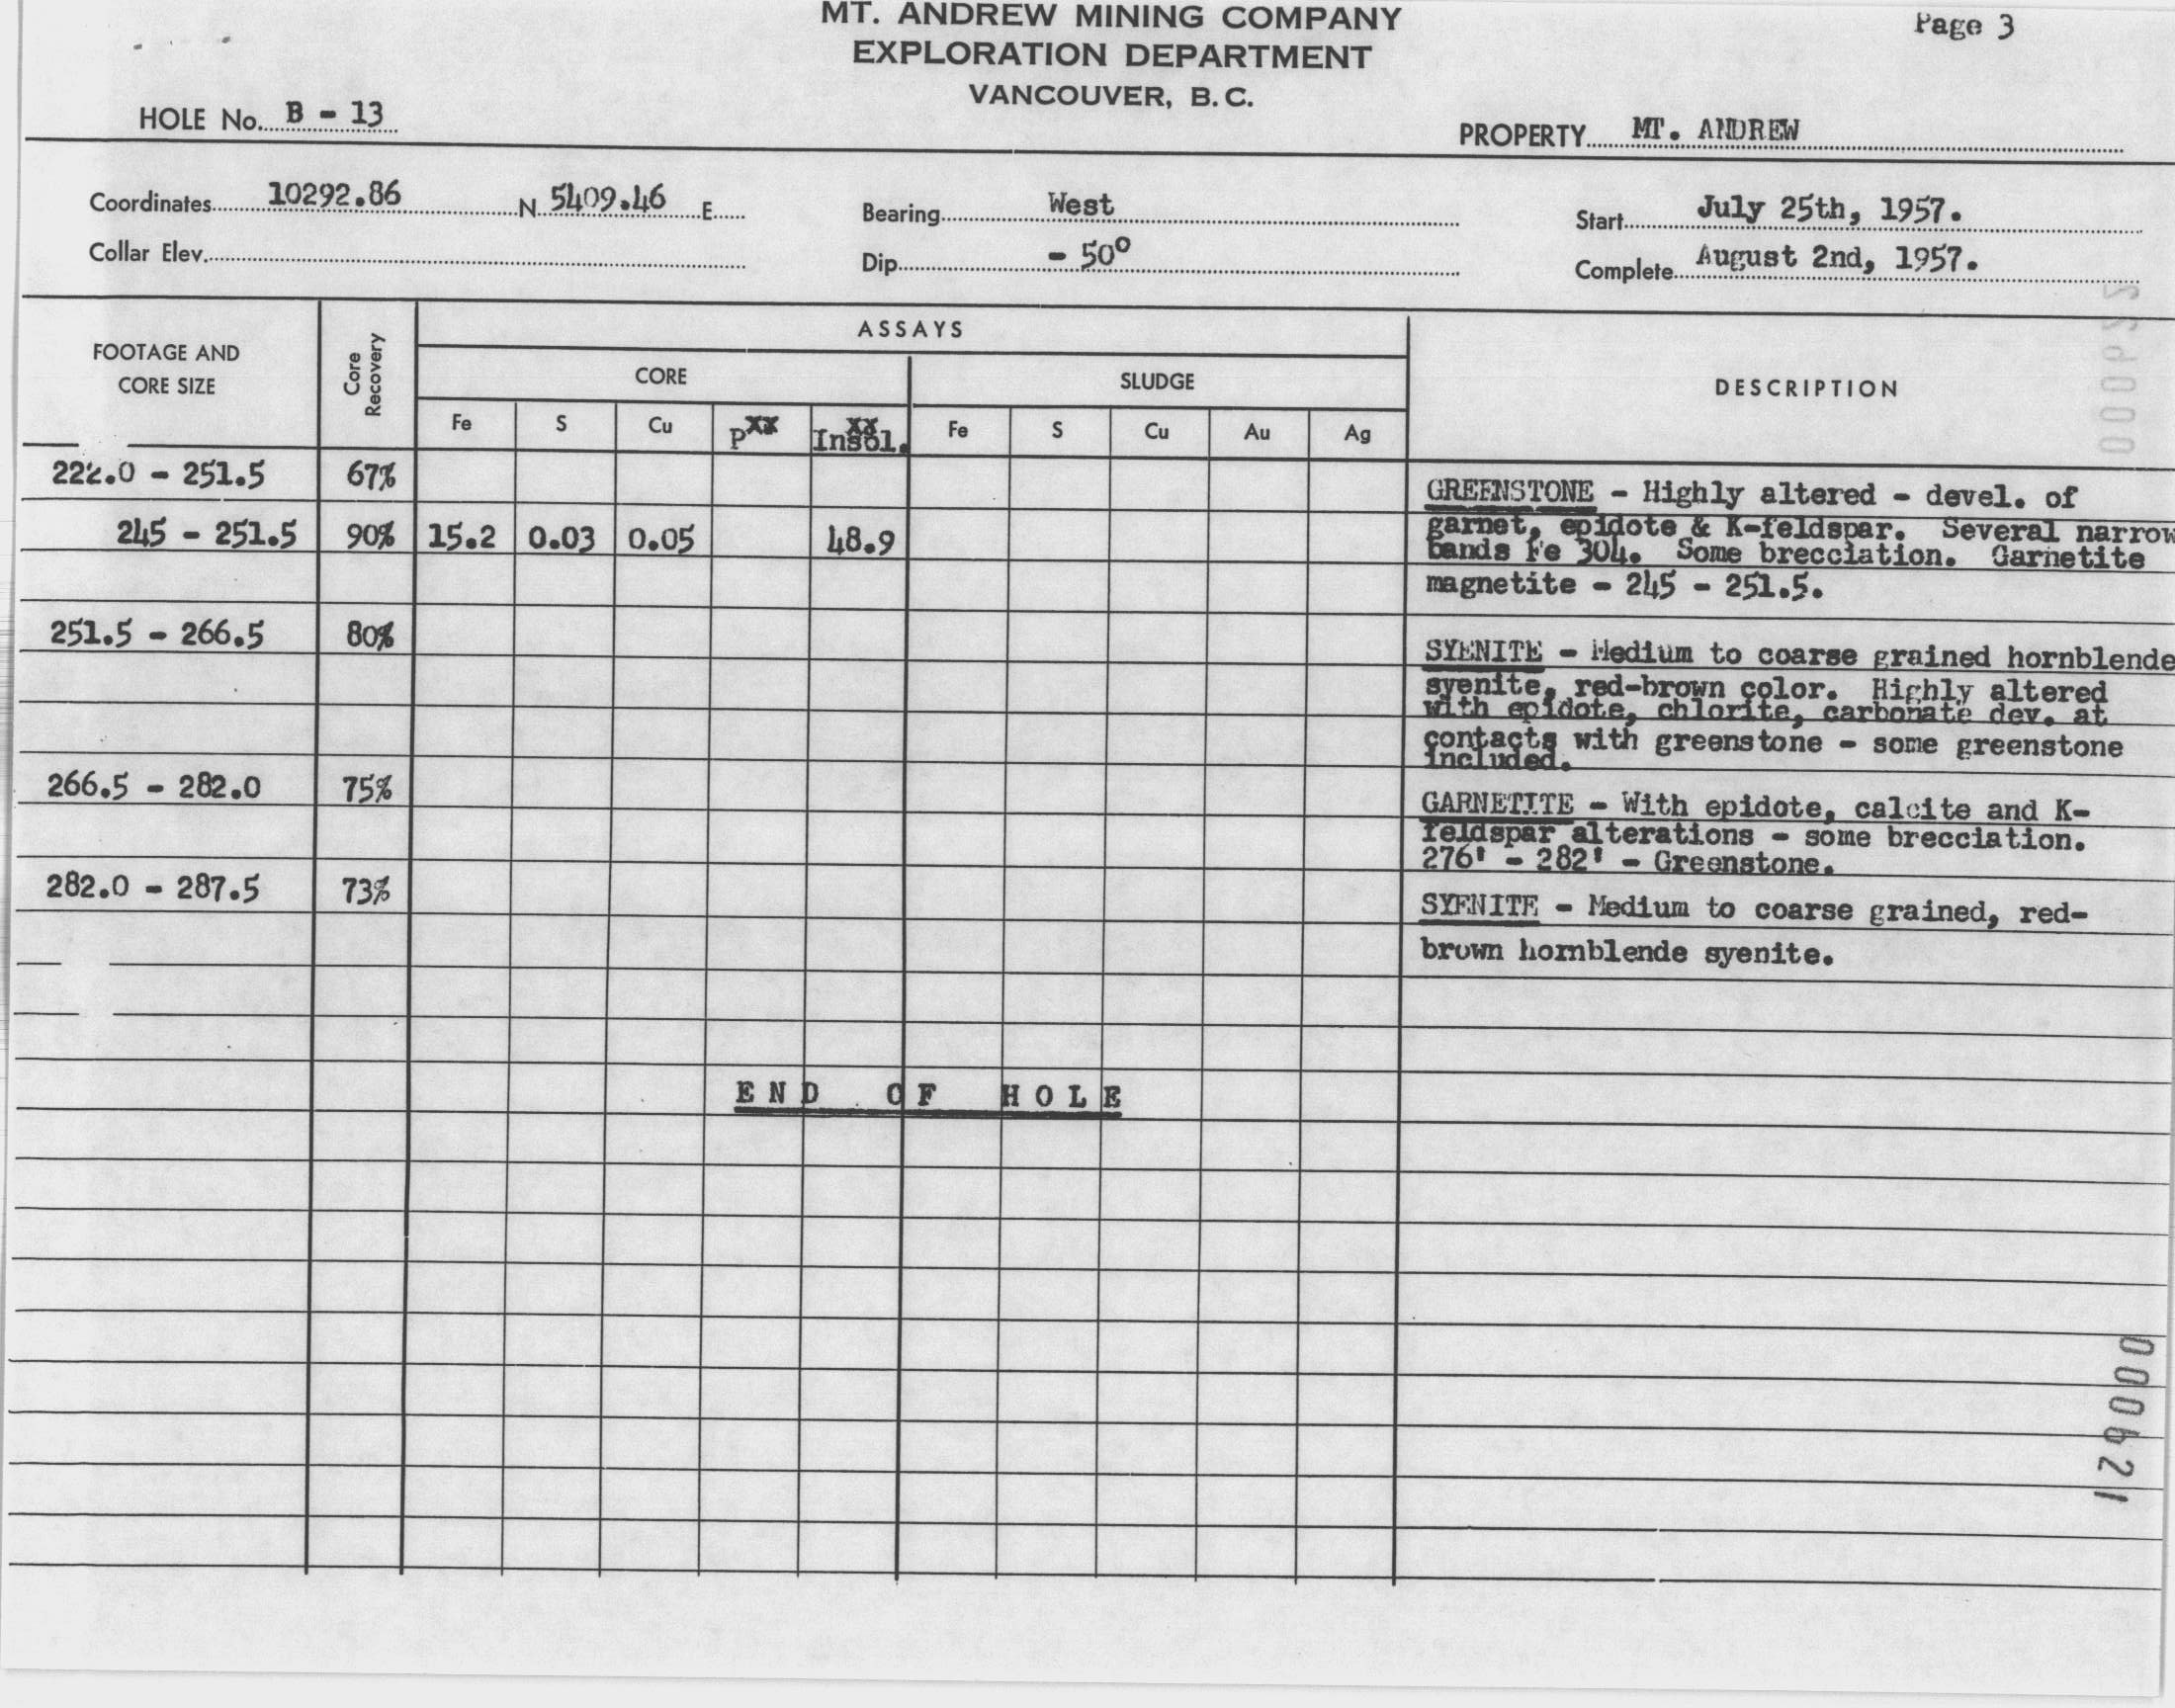 MT. ANDREW MINING COMPANY
Page 3
EXPLORATION DEPARTMENT
VANCOUVER, B.C.
HOLE No. B - 13
PROPERTY MT. ANDREW
Coordinates 10292.86 N 5409.46 E
Bearing West
Start July 25th, 1957.
Collar Elev.
Dip - 50°
Complete August 2nd, 1957.
FOOTAGE AND CORE SIZE
Core Recovery
ASSAYS
CORE
SLUDGE
DESCRIPTION
Fe S Cu Pxx Insol.xx Fe S Cu Au Ag
222.0 - 251.5 67%
GREENSTONE - Highly altered - devel. of
245 - 251.5 90% 15.2 0.03 0.05 48.9
garnet, epidote & K-feldspar. Several narrow
bands Fe 304. Some brecciation. Garnetite
magnetite - 245 - 251.5.
251.5 - 266.5 80%
SYENITE - Medium to coarse grained hornblende
syenite, red-brown color. Highly altered
with epidote, chlorite, carbonate dev. at
contacts with greenstone - some greenstone
included.
266.5 - 282.0 75%
GARNETITE - With epidote, calcite and K-
feldspar alterations - some brecciation.
276' - 282' - Greenstone.
282.0 - 287.5 73%
SYENITE - Medium to coarse grained, red-
brown hornblende syenite.
END OF HOLE
000621